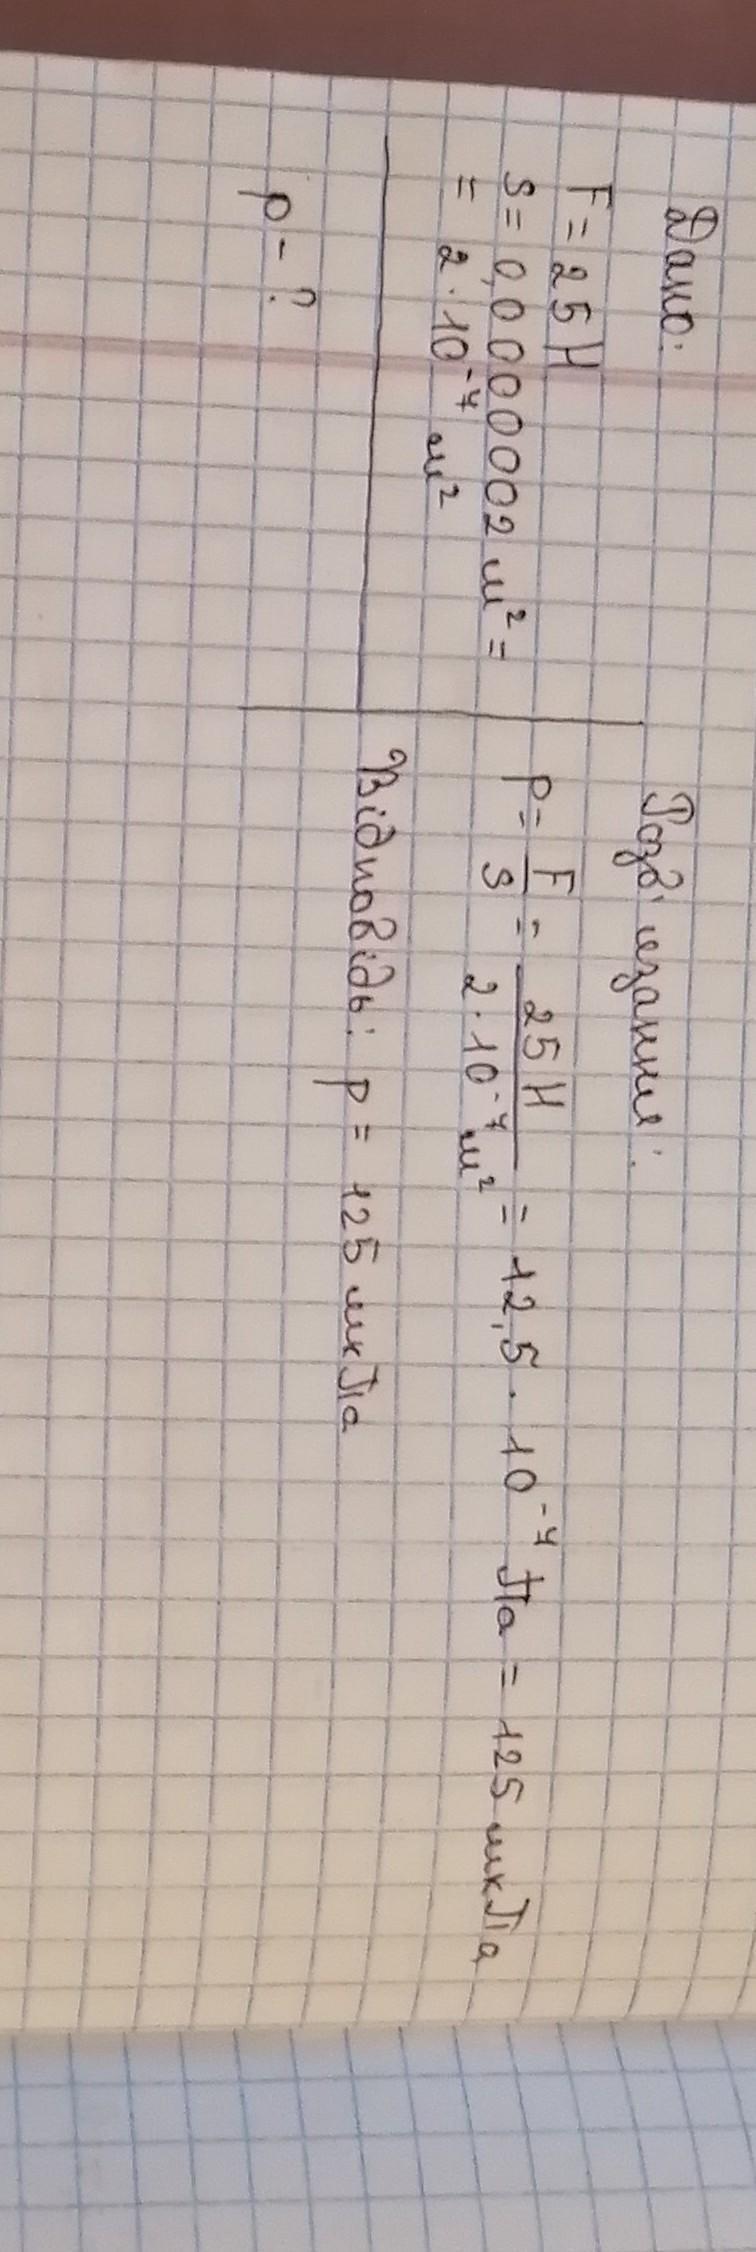 Дано:
F = 25 Н
S = 0,0000002 м² =
= 2 · 10⁻⁷ м²
p - ?
Розв'язання:
p = F/S = 25 Н / 2 · 10⁻⁷ м² = 12,5 · 10⁻⁷ Па = 125 мкПа
Відповідь: p = 125 мкПа